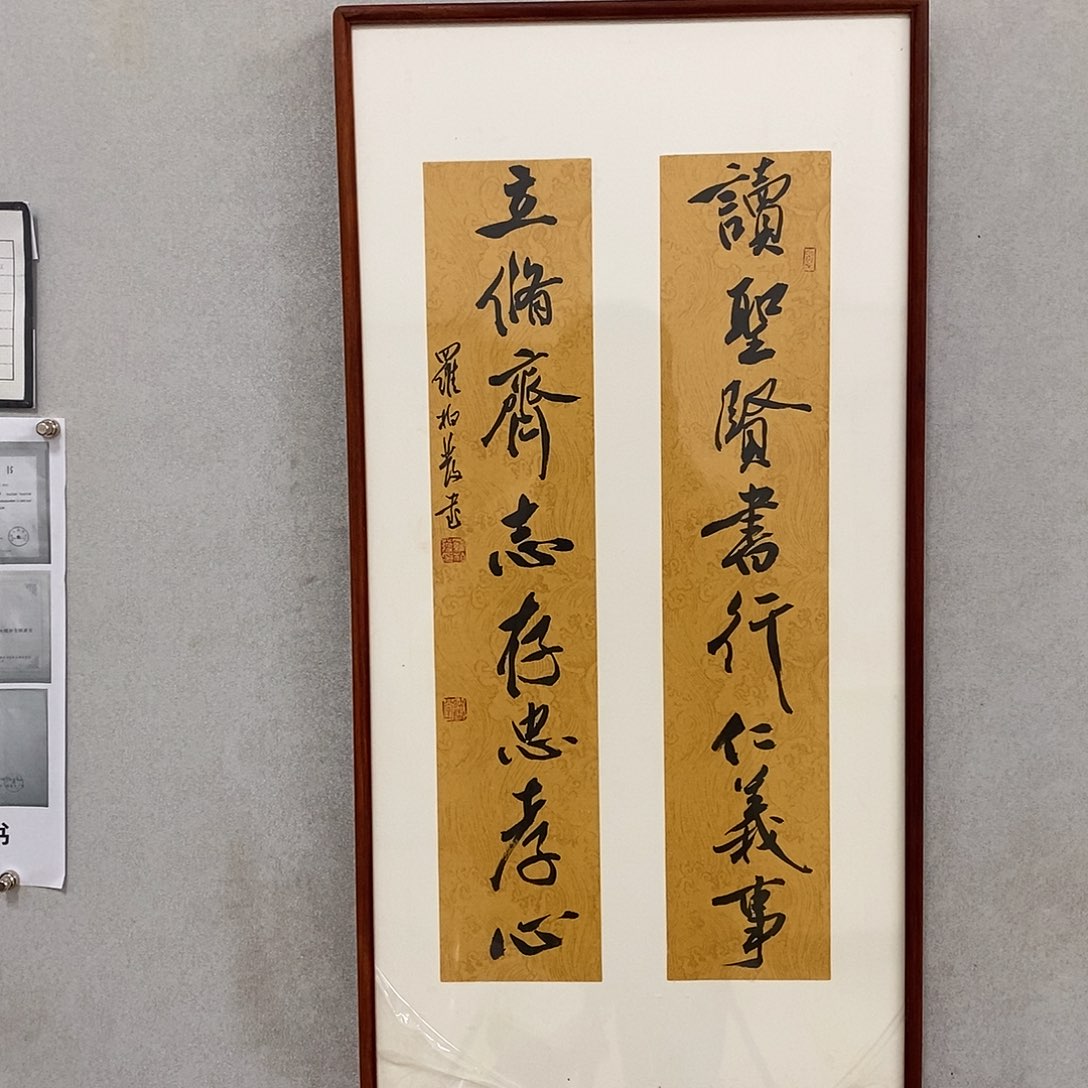 讀聖賢書行仁義事
立脩齊志存忠孝心
羅柏發書
书